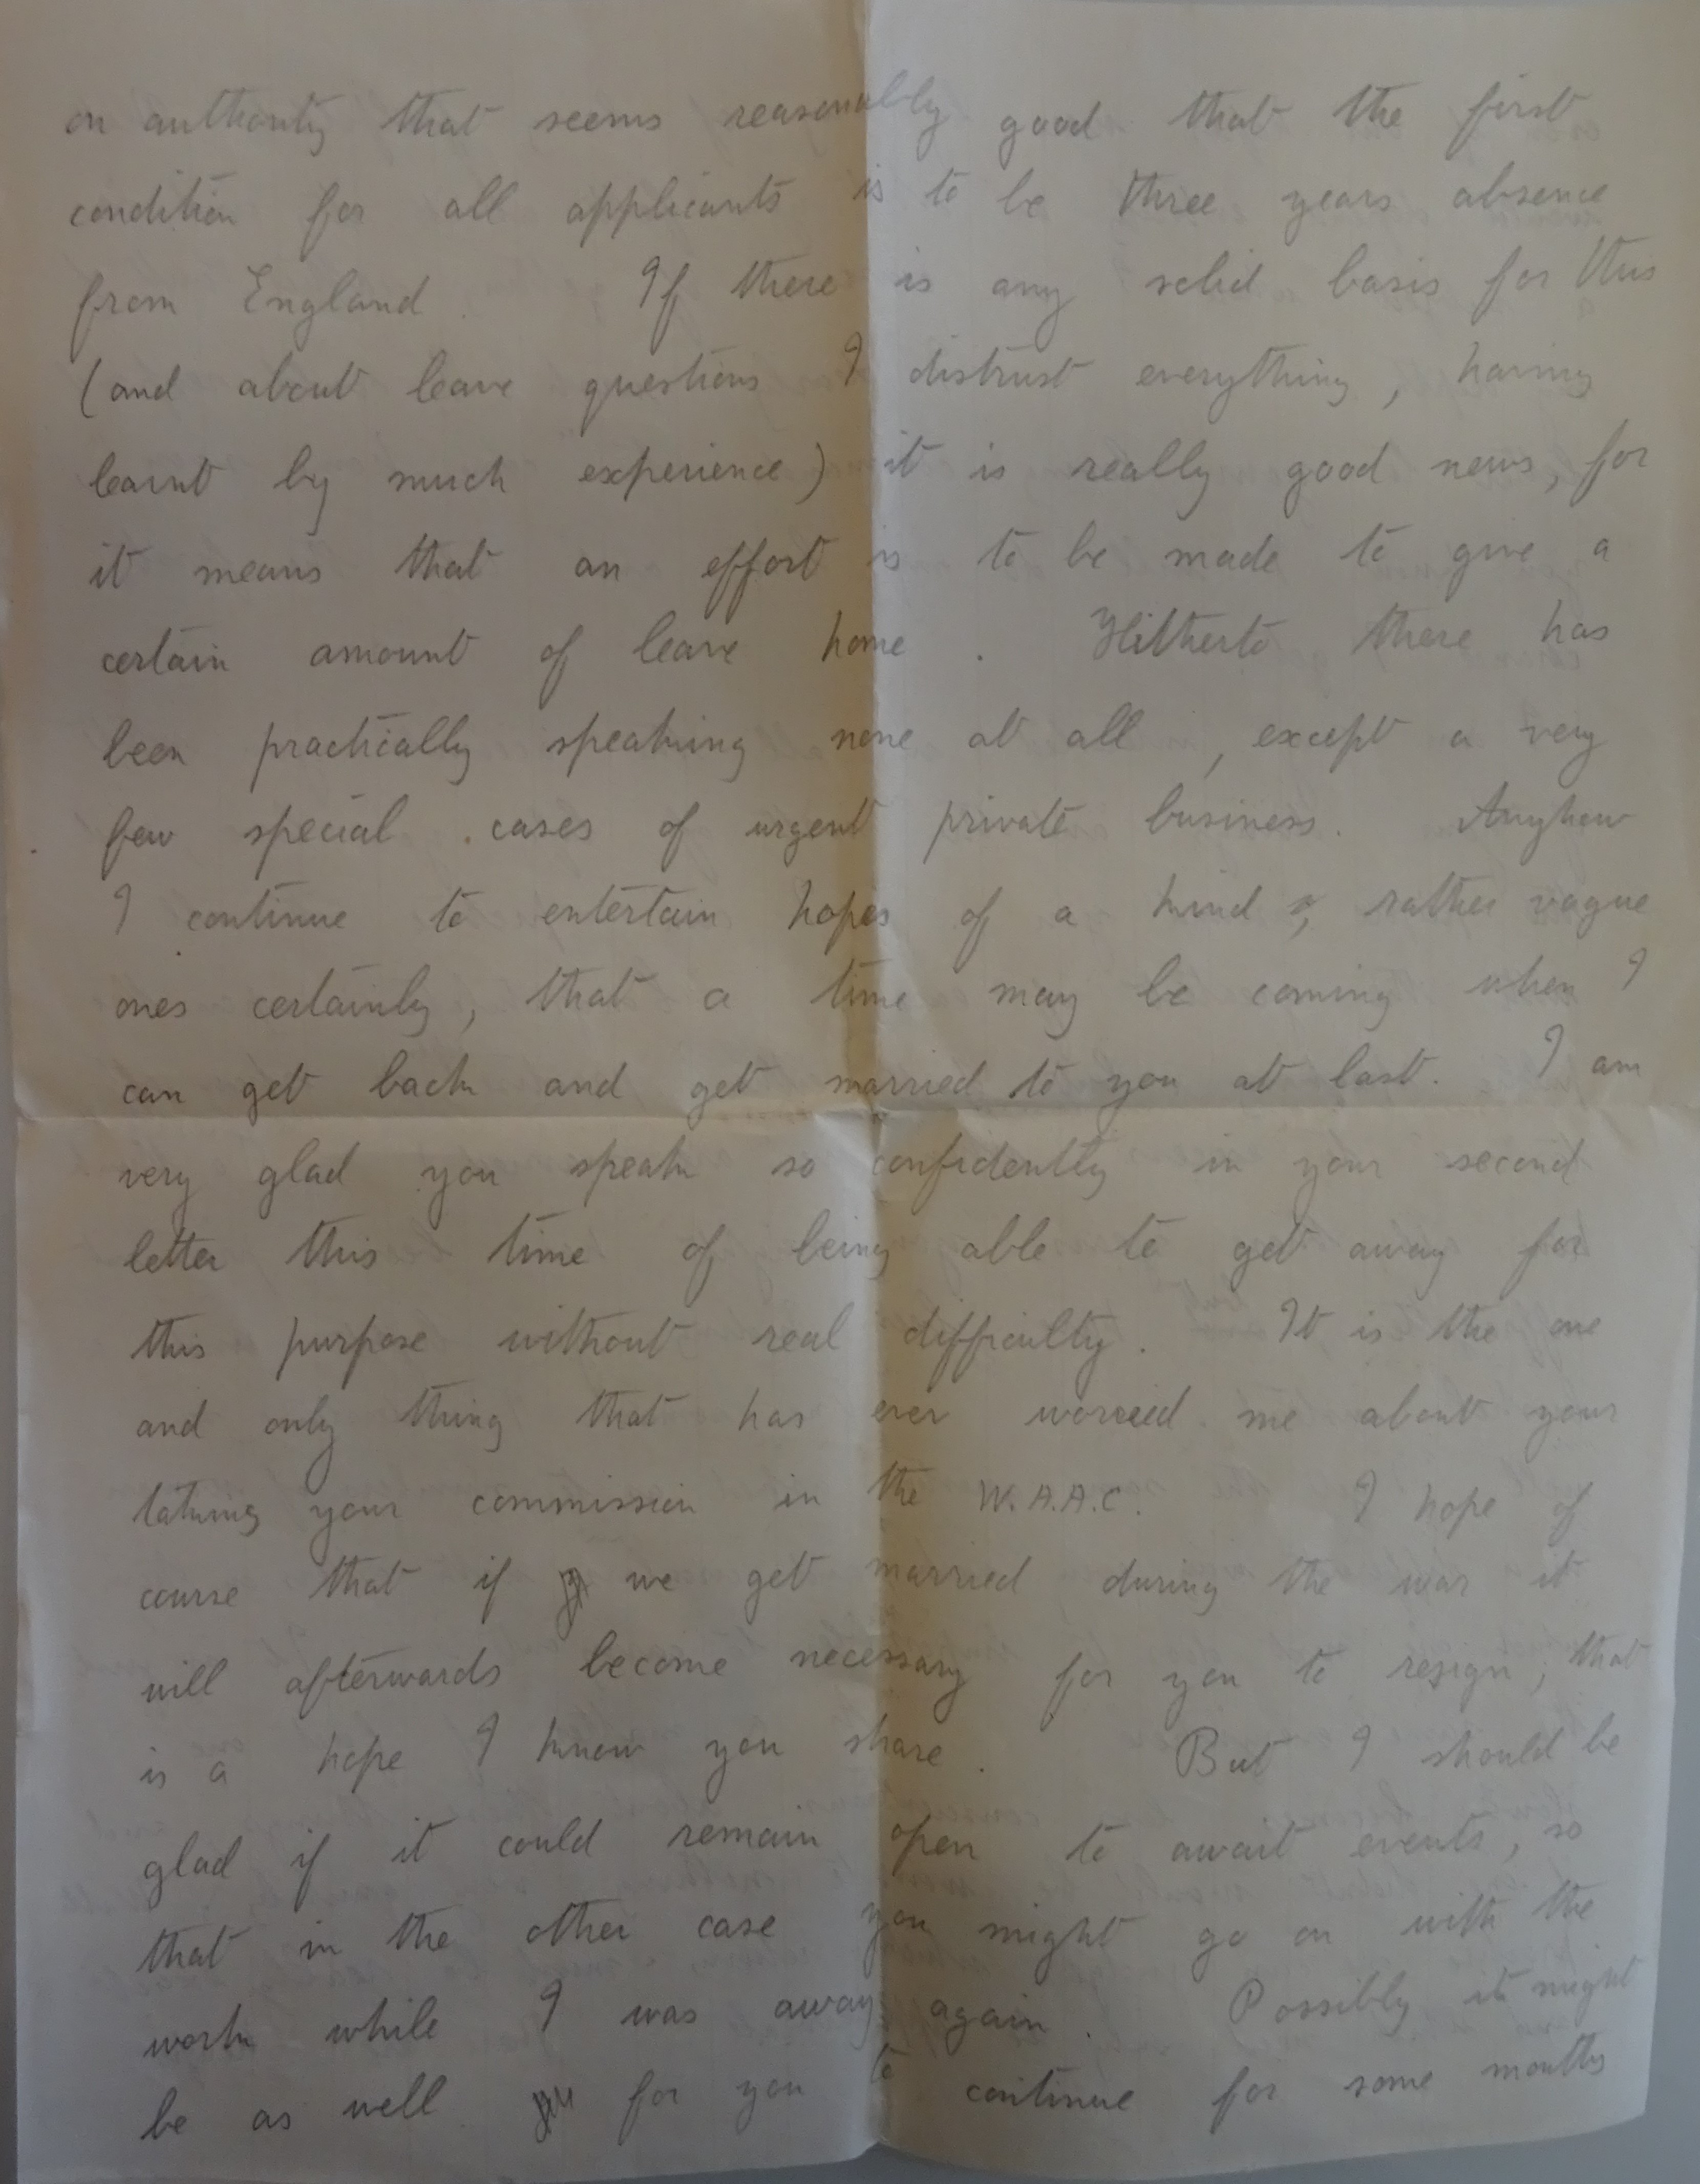 on authority that seems reasonably good that the first
condition for all applicants is to be three years absence
from England. If there is any solid basis for this
(and about leave questions I distrust everything, having
learnt by much experience) it is really good news, for
it means that an effort is to be made to give a
certain amount of leave home. Hitherto there has
been practically speaking none at all, except a very
few special cases of urgent private business. Anyhow
I continue to entertain hopes of a kind, rather vague
ones certainly, that a time may be coming when I
can get back and get married to you at last. I am
very glad you speak so confidently in your second
letter this time of being able to get away for
this purpose without real difficulty. It is the one
and only thing that has ever worried me about your
taking your commission in the W.A.A.C. I hope of
course that if we get married during the war it
will afterwards become necessary for you to resign; that
is a hope I know you share. But I should be
glad if it could remain open to await events, so
that in the other case you might go on with the
work while I was away again. Possibly it might
be as well for you to continue for some months